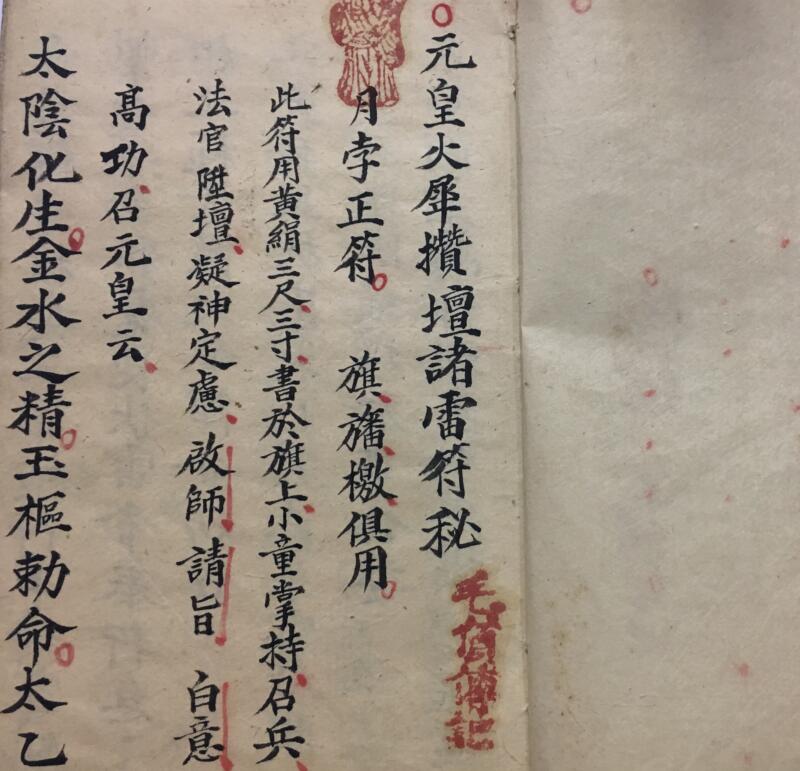 元皇火犀攢壇諸雷符秘
月孛正符 旗旛檄俱用
此符用黃絹三尺三寸書於旗上小童掌持召兵
法官陞壇凝神定慮啟師請旨 白意
高功召元皇云
太陰化生金水之精玉樞勅命太乙